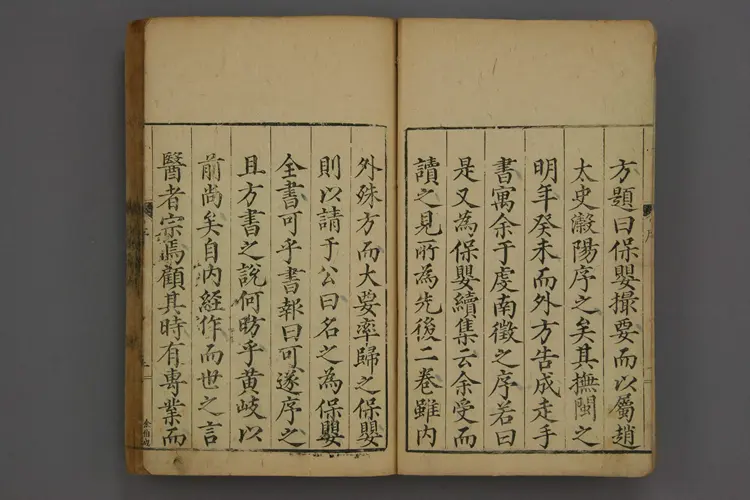 方題曰保嬰撮要而以屬趙
太史瀫陽序之矣其撫閩之
明年癸未而外方告成走手
書寓余于虔南徵之序若曰
是又為保嬰續集云余受而
讀之見所為先後二卷雖內
外殊方而大要率歸之保嬰
則以請于公曰名之為保嬰
全書可乎書報曰可遂序之
且方書之說何昉乎黃岐以
前尚矣自內經作而世之言
醫者宗焉顧其時有專業而
序